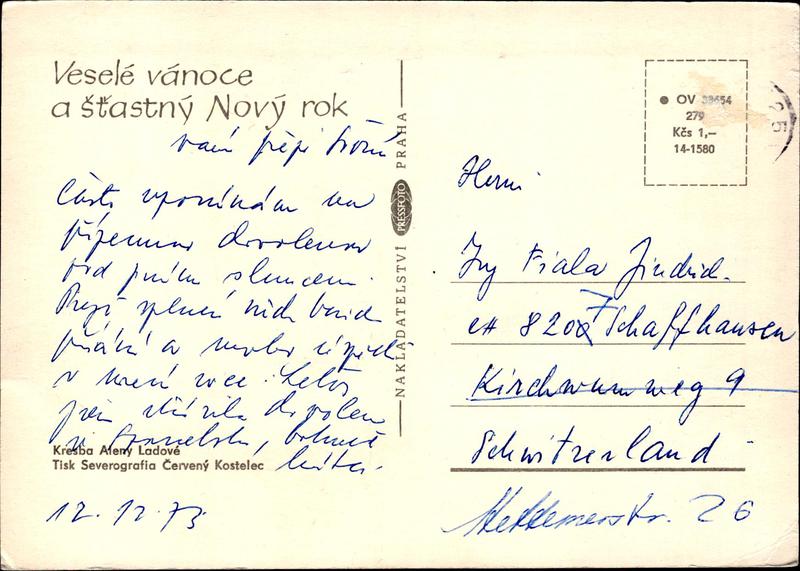 Veselé vánoce
a šťastný Nový rok
vám přeje
Často vzpomínám na
příjemnou dovolenou
pod jižním sluncem.
přání a mnoho úspěchů
v novém roce. Letos
jsem strávila dovolenou
v
12. 12. 73
Kresba Aleny Ladové
Tisk Severografia Červený Kostelec
NAKLADATELSTVÍ PRESSFOTO PRAHA
● OV 38654
279
Kčs 1,–
14-1580
25
Herrn
Ing Fiala Jindrich.
CH 8200 Schaffhausen
Kirchwumweg 9
Schwitzerland
26